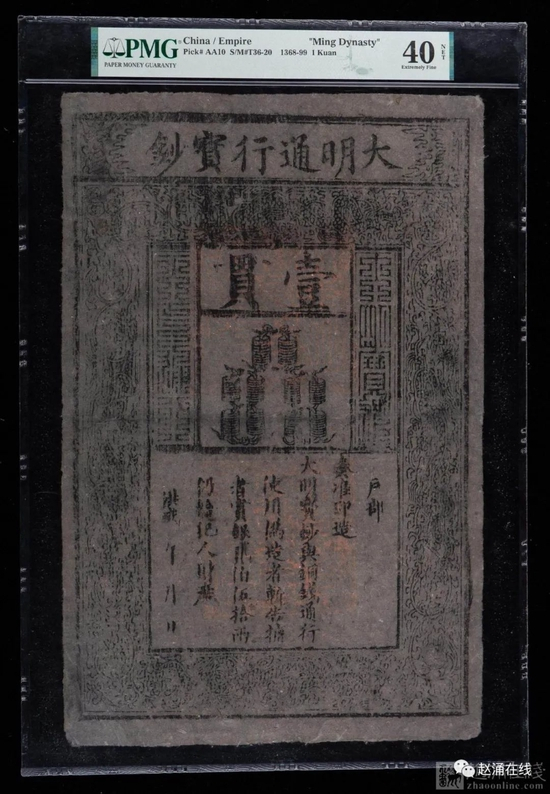 PMG
PAPER MONEY GUARANTY
China / Empire "Ming Dynasty"
Pick# AA10 S/M#T36-20 1368-99 1 Kuan
40 NET
Extremely Fine
大明通行寶鈔
壹貫
大明寶鈔
天下通行
戶部
奏准印造
大明寶鈔與銅錢通行
使用偽造者斬告捕
者賞銀貳伯伍拾兩
仍給犯人財產
洪武 年 月 日
赵涌在线
zhaoonline.com